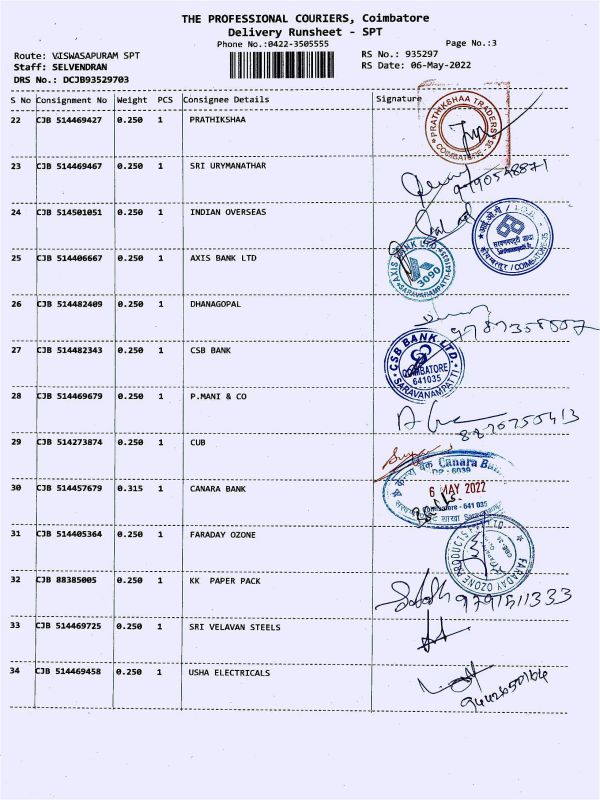 THE PROFESSIONAL COURIERS, Coimbatore
Delivery Runsheet - SPT
Phone No.:0422-3505555
Page No.:3
Route: VISWASAPURAM SPT
RS No.: 935297
Staff: SELVENDRAN
RS Date: 06-May-2022
DRS No.: DCJB93529703
S No Consignment No Weight PCS Consignee Details Signature
22 CJB 514469427 0.250 1 PRATHIKSHAA
PRATHIKSHAA TRADERS
COIMBATORE - 35
23 CJB 514469467 0.250 1 SRI URYMANATHAR
9790548871
24 CJB 514501051 0.250 1 INDIAN OVERSEAS
25 CJB 514406667 0.250 1 AXIS BANK LTD
AXIS BANK LTD
3090
26 CJB 514482409 0.250 1 DHANAGOPAL
27 CJB 514482343 0.250 1 CSB BANK
CSB BANK LTD.
COIMBATORE
641035
SARAVANAMPATTI
28 CJB 514469679 0.250 1 P.MANI & CO
8870750413
29 CJB 514273874 0.250 1 CUB
30 CJB 514457679 0.315 1 CANARA BANK
Canara Bank
6 MAY 2022
31 CJB 514405364 0.250 1 FARADAY OZONE
FARADAY OZONE PRODUCTS
32 CJB 88385005 0.250 1 KK PAPER PACK
9791511333
33 CJB 514469725 0.250 1 SRI VELAVAN STEELS
34 CJB 514469458 0.250 1 USHA ELECTRICALS
9442650166